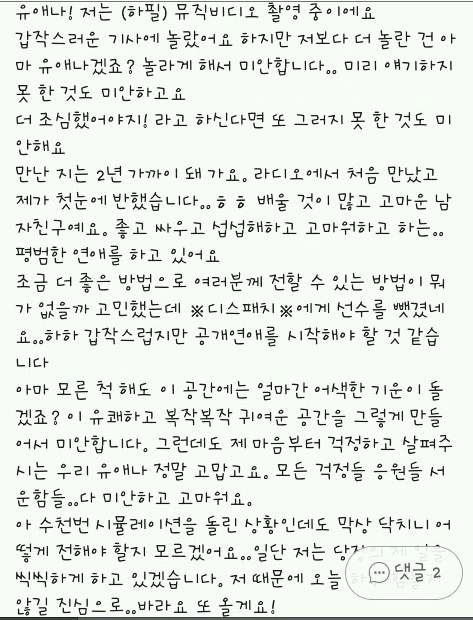 유애나! 저는 (하필) 뮤직비디오 촬영 중이에요
갑작스러운 기사에 놀랐어요 하지만 저보다 더 놀란 건 아
마 유애나겠죠? 놀라게 해서 미안합니다.. 미리 얘기하지
못 한 것도 미안하고요
더 조심했어야지! 라고 하신다면 또 그러지 못 한 것도 미
안해요
만난 지는 2년 가까이 돼 가요. 라디오에서 처음 만났고
제가 첫눈에 반했습니다..ㅎㅎ 배울 것이 많고 고마운 남
자친구예요. 좋고 싸우고 섭섭해하고 고마워하고 하는..
평범한 연애를 하고 있어요
조금 더 좋은 방법으로 여러분께 전할 수 있는 방법이 뭐
가 없을까 고민했는데 ※디스패치※에게 선수를 뺏겼네
요..하하 갑작스럽지만 공개연애를 시작해야 할 것 같습
니다
아마 모른 척 해도 이 공간에는 얼마간 어색한 기운이 돌
겠죠? 이 유쾌하고 복작복작 귀여운 공간을 그렇게 만들
어서 미안합니다. 그런데도 제 마음부터 걱정하고 살펴주
시는 우리 유애나 정말 고맙고요. 모든 걱정들 응원들 서
운함들..다 미안하고 고마워요.
아 수천번 시뮬레이션을 돌린 상황인데도 막상 닥치니 어
떻게 전해야 할지 모르겠어요..일단 저는 당장의 제 일을
씩씩하게 하고 있겠습니다. 저 때문에 오늘
않길 진심으로..바라요 또 올게요!
댓글 2